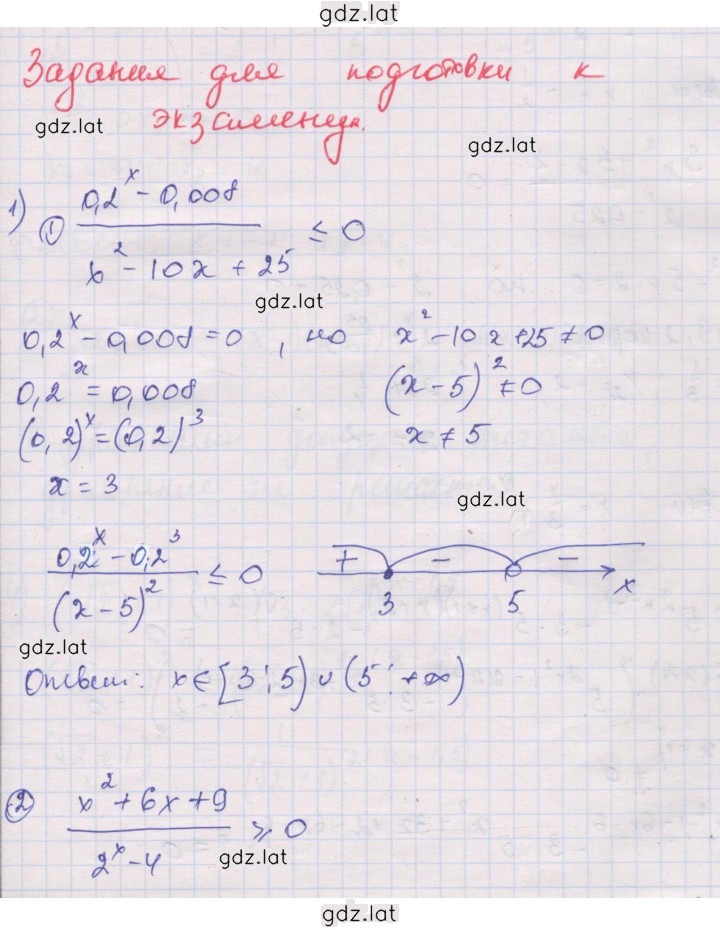 gdz.lat
Задания для подготовки к
экзамену.
gdz.lat
gdz.lat
1) ① (0,2^x - 0,008)/(x^2 - 10x + 25) ≤ 0
gdz.lat
0,2^x - 0,008 = 0, но x^2 - 10x + 25 ≠ 0
0,2^x = 0,008 (x - 5)^2 ≠ 0
(0,2)^x = (0,2)^3 x ≠ 5
x = 3
gdz.lat
(0,2^x - 0,2^3)/(x - 5)^2 ≤ 0 + - - x
3 5
gdz.lat
Ответ: x ∈ [3; 5) ∪ (5; +∞)
② (x^2 + 6x + 9)/(2^x - 4) ≥ 0
gdz.lat
gdz.lat